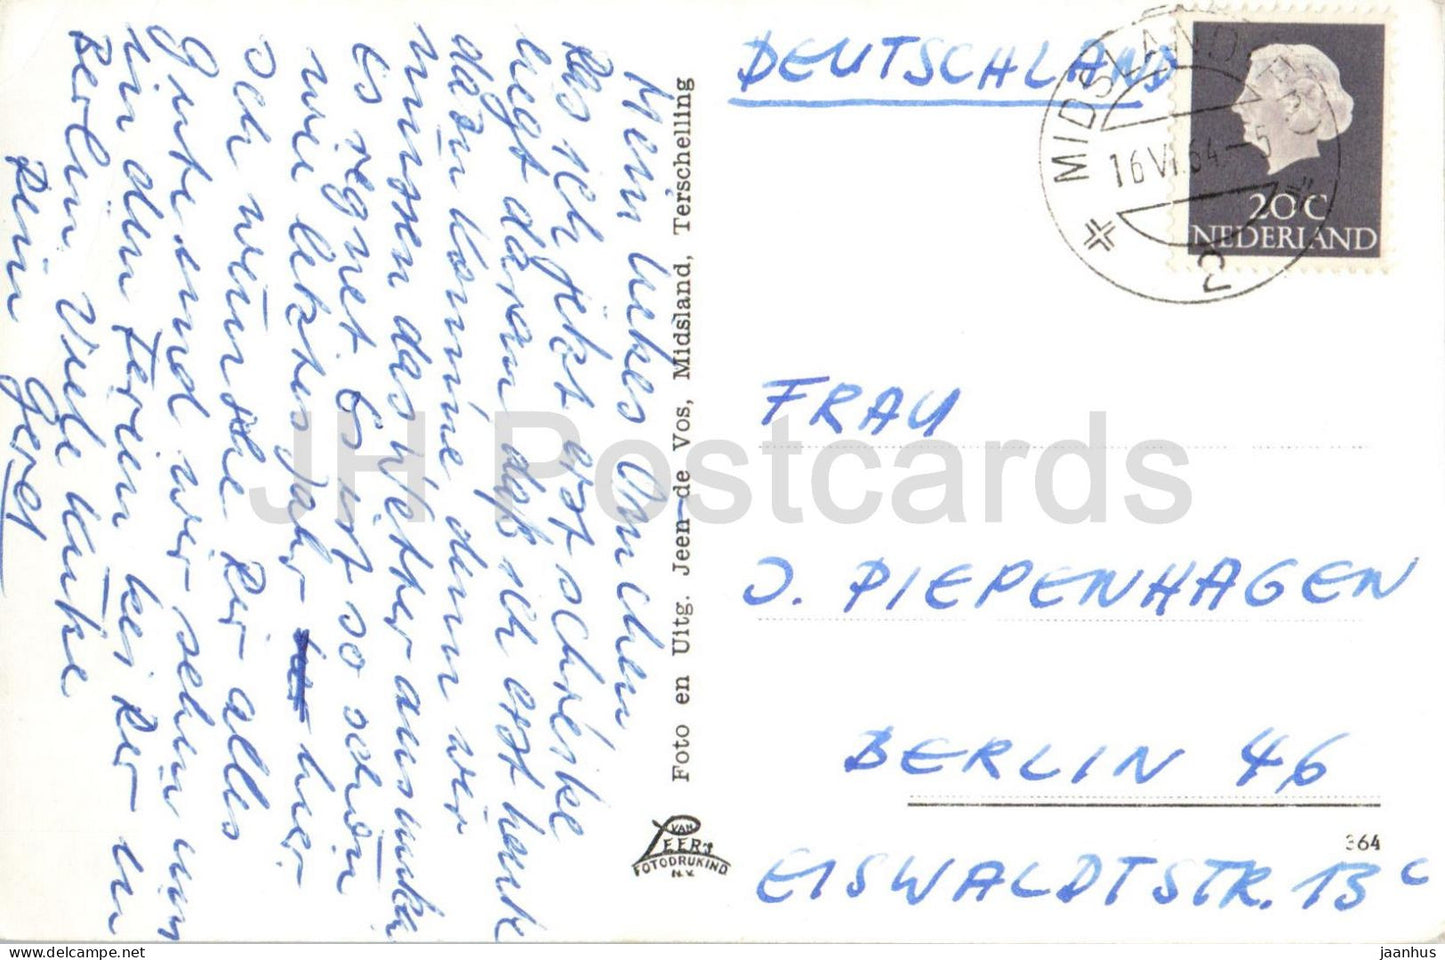 Mein liebes Omchen
Das ich jetzt erst schreibe
liegt daran daß ich erst heute
dazu komme, denn wir
müssen das Wetter ausnutzen
Es regnet
Es ist so schön
wie letztes Jahr hier
Ich wünsche Dir alles
Gute und wir sehen uns
in den Ferien bei Dir in
Berlin Viele Küße
Dein Gerd
Foto en Uitg. Jeen de Vos, Midsland, Terschelling
VAN LEER'S
FOTODRUKIND.
N.V.
DEUTSCHLAND
MIDSLAND
16 VI 64 - 5
20 C
NEDERLAND
FRAU
J. PIEPENHAGEN
BERLIN 46
364
EISWALDTSTR. 13 c
JH Postcards
www.delcampe.net
jaanhus